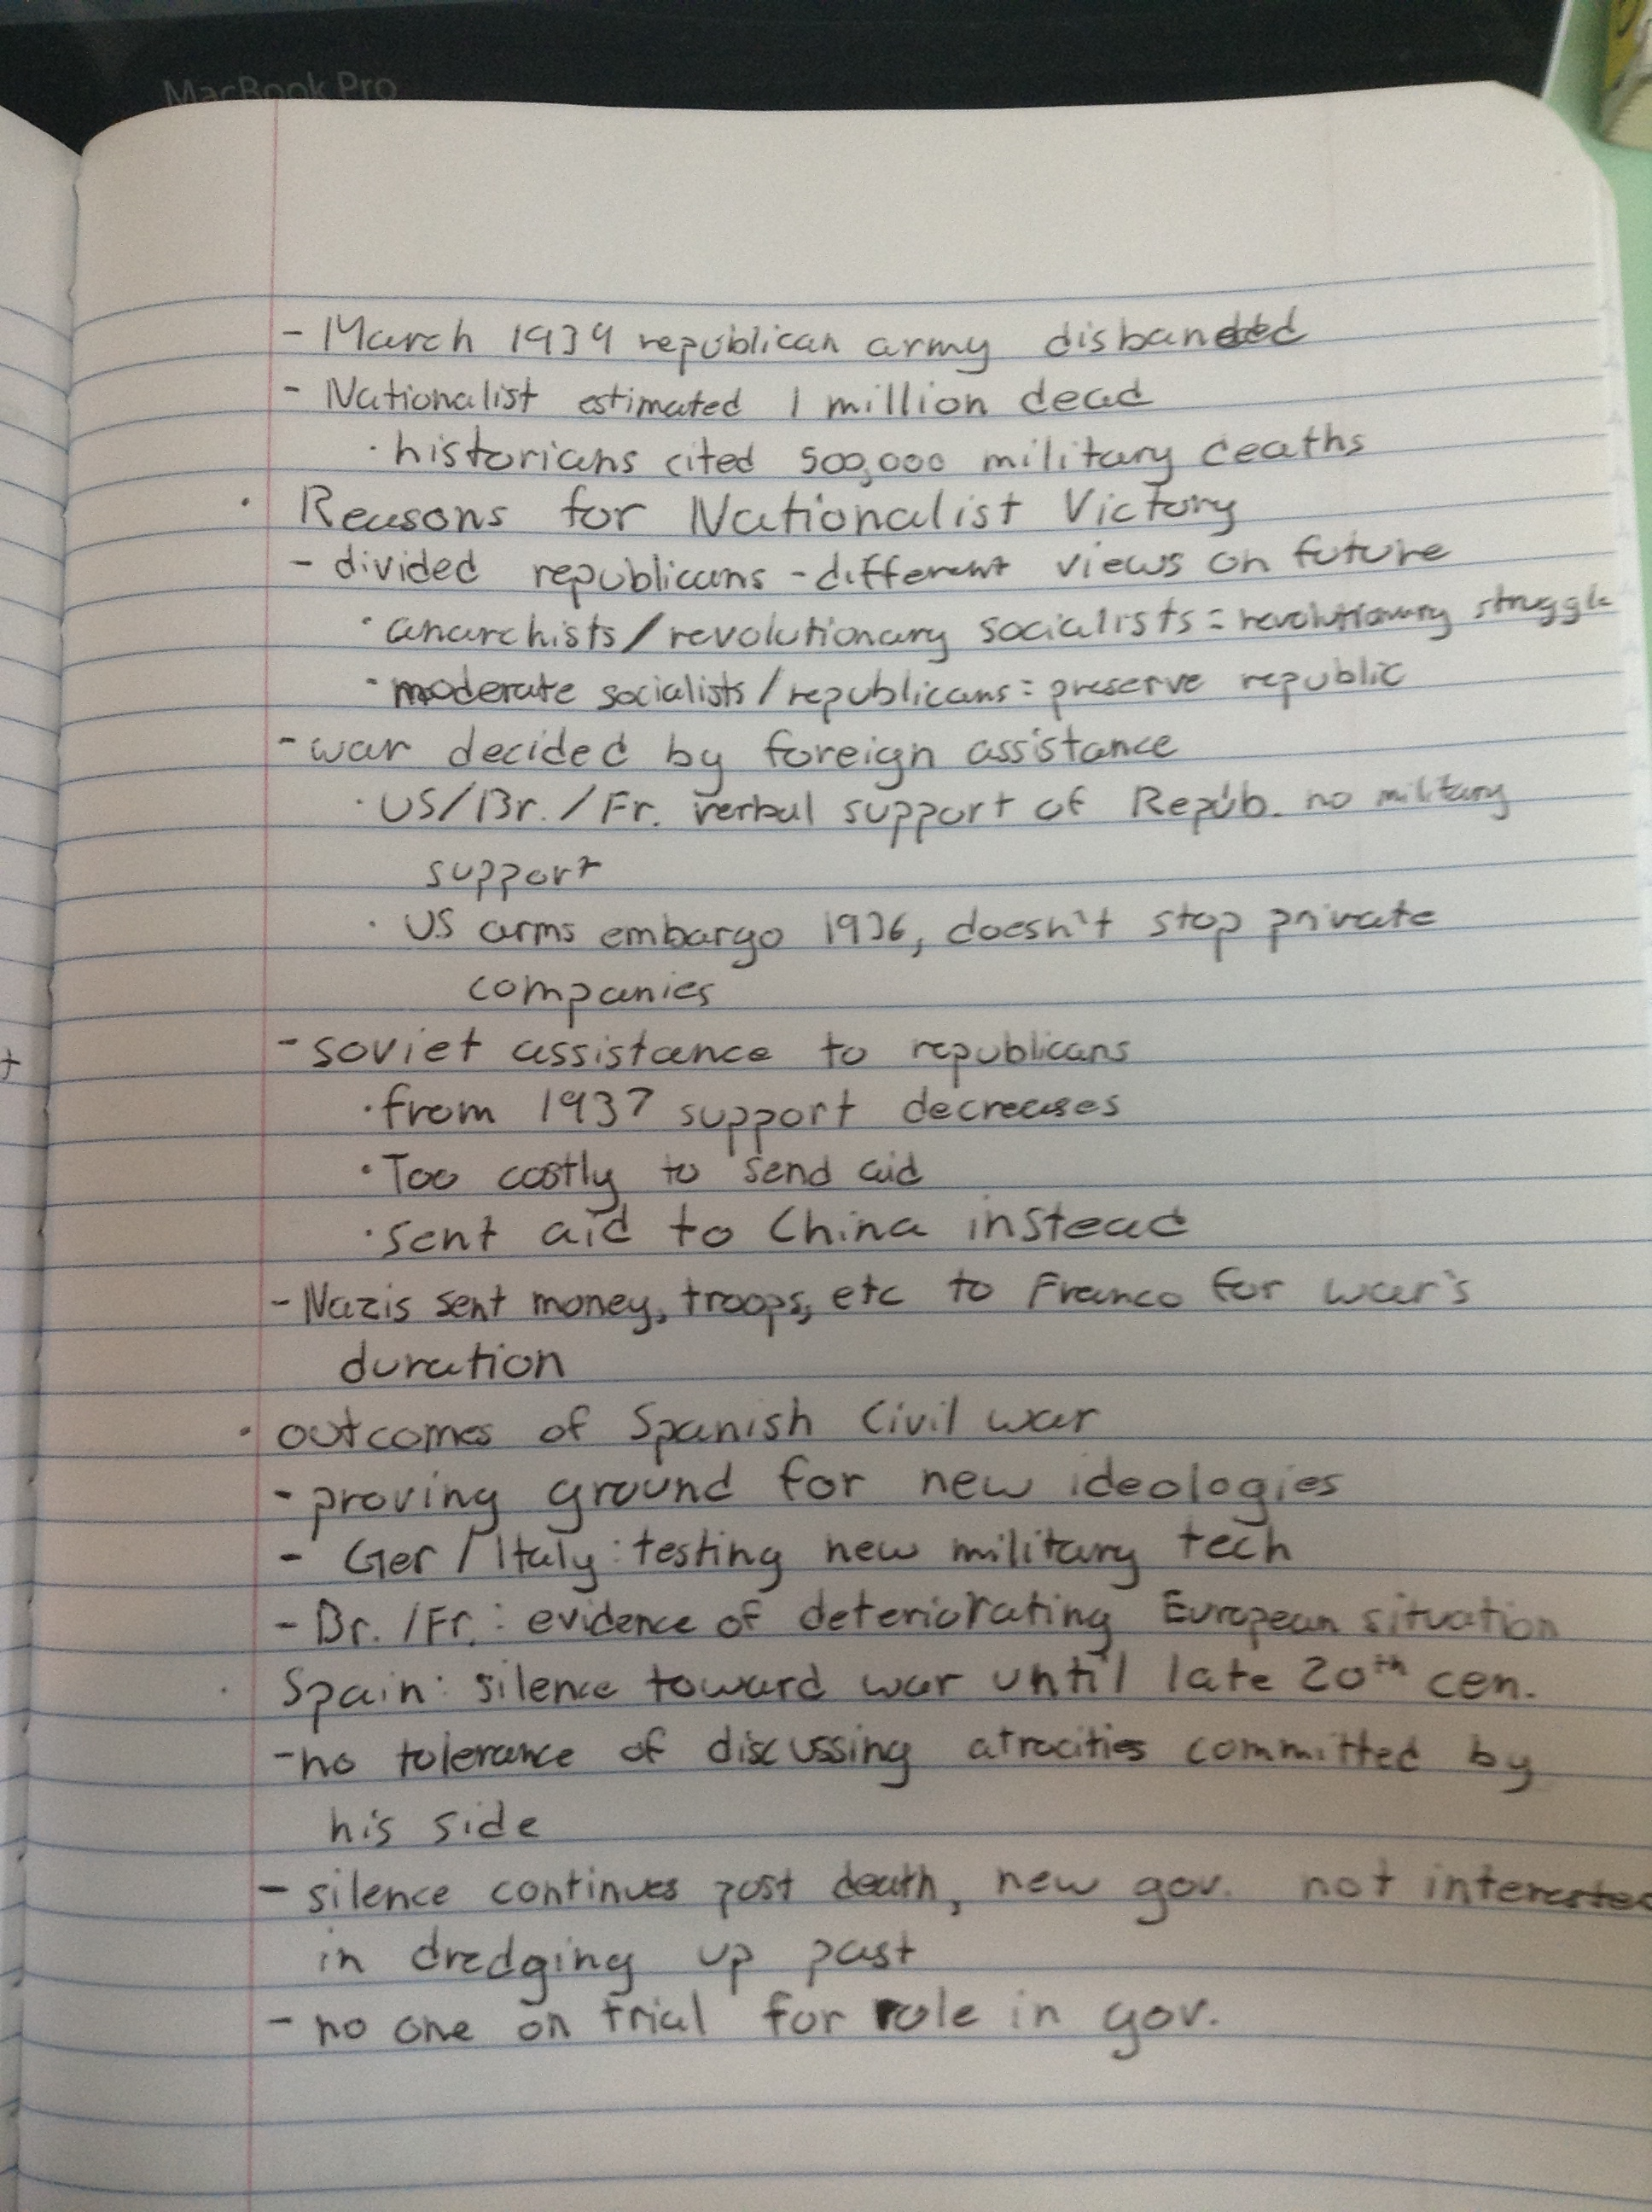 MacBook Pro
- March 1939 republican army disbanded
- Nationalist estimated 1 million dead
· historians cited 500,000 military deaths
· Reasons for Nationalist Victory
- divided republicans - different views on future
· anarchists/revolutionary socialists = revolutionary struggle
· moderate socialists/republicans = preserve republic
- war decided by foreign assistance
· US/Br./Fr. verbal support of Repub. no military
support
· US arms embargo 1936, doesn't stop private
companies
- soviet assistance to republicans
· from 1937 support decreases
· Too costly to send aid
· sent aid to China instead
- Nazis sent money, troops, etc to Franco for war's
duration
· outcomes of Spanish Civil war
- proving ground for new ideologies
- Ger/Italy: testing new military tech
- Br./Fr.: evidence of deteriorating European situation
· Spain: silence toward war until late 20th cen.
- no tolerance of discussing atrocities committed by
his side
- silence continues post death, new gov. not interested
in dredging up past
- no one on trial for role in gov.